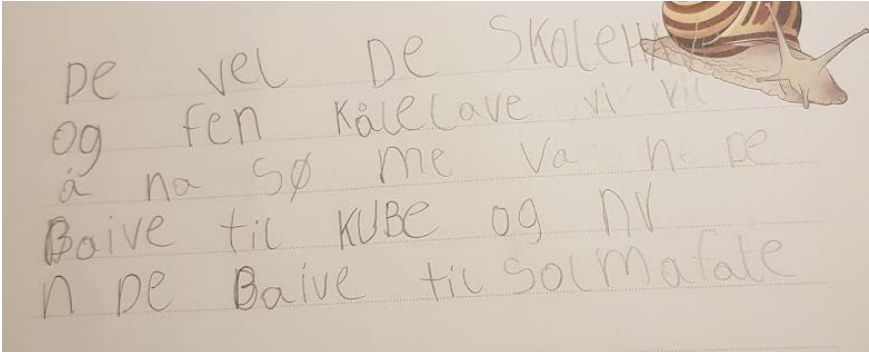 De vel De SKOLEHA
og fen Kålelave vi vil
å na sø me Va n De
Baive til KUBE og nV
n De Baive til Solmafate